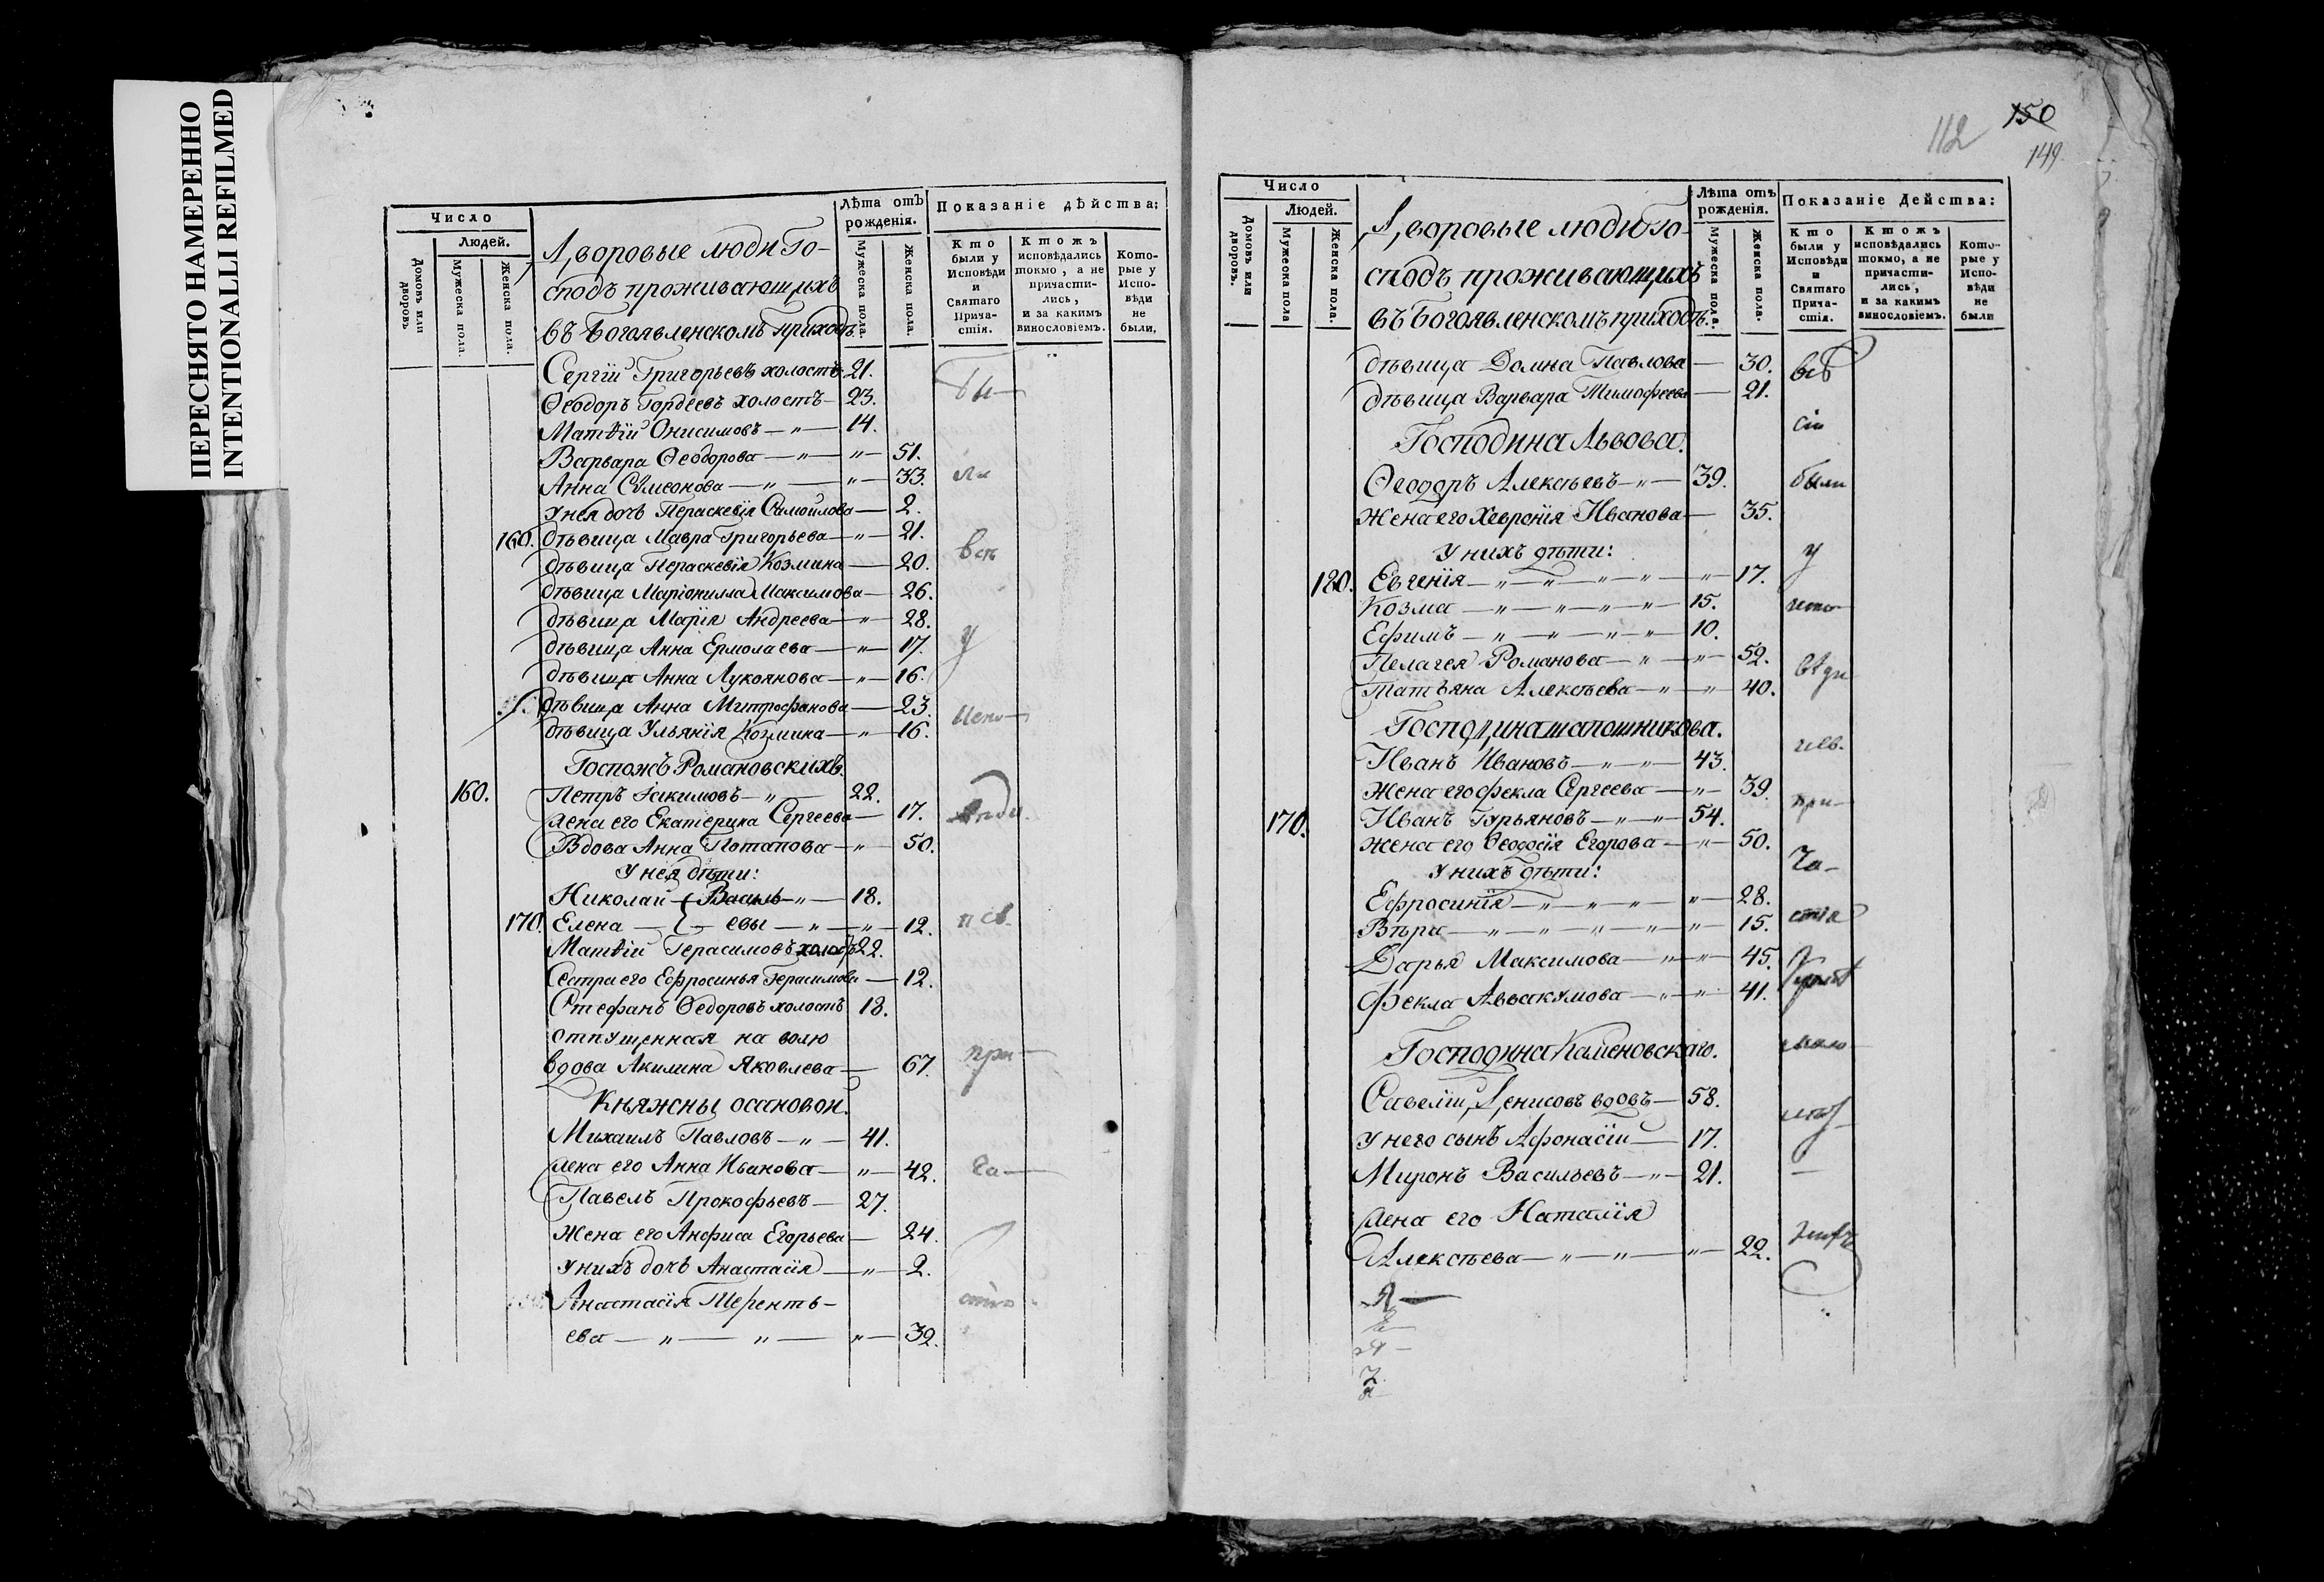 ПЕРЕСНЯТО НАМЕРЕННО
INTENTIONALLI REFILMED
Число
Людей.
Домовъ или дворовъ
Мужеска пола.
Женска пола.
Дворовые люди Го-
сподъ проживающихъ
въ Богоявленскомъ приходѣ.
Лѣта отъ рожденія.
Мужеска пола.
Женска пола.
Показаніе дѣйства:
Кто были у Исповѣди и Святаго Прича-стія.
Ктожъ исповѣдались токмо, а не причасти-лись, и за какимъ винословіемъ.
Кото-рые у Испо-вѣди не были,
Сергій Григорьевъ холостъ 21.
Ѳеодоръ Гордеевъ холостъ — 23. бы—
Матѳій Онисимовъ — „ — 14.
Варвара Ѳеодорова — „ — „ — 51.
Анна Сѵмеонова — „ — „ — 33. ли
У нея дочь Пераскевія Самойлова — 2.
160. дѣвица Мавра Григорьева — „ — 21.
дѣвица Пераскевія Козмина — 20. вси
дѣвица Маріонилла Максимова — 26.
дѣвица Марія Андреева — „ — 28.
дѣвица Анна Ермолаева — „ — 17. у
дѣвица Анна Лукоянова — „ — 16.
дѣвица Анна Митрофанова — 23. испо—
дѣвица Ульянія Козмина — „ — 16.
Госпожъ Романовскихъ.
160. Петръ Іакимовъ — „ — 22.
жена его Екатерина Сергеева — 17.
Вдова Анна Потапова — „ — 50.
У нея дѣти:
Николай — { Василь — „ — 18.
170. Елена — { — евы — „ — „ — 12. и св.
Матѳій Герасимовъ холостъ 22.
Сестра его Ефросинья Герасимова — 12.
Стефанъ Ѳедоровъ холостъ 18.
отпущенная на волю
вдова Акилина Яковлева — 67. при—
Княжны осановой.
Михаилъ Павловъ — „ — 41.
жена его Анна Иванова — „ — 42. ча—
Павелъ Прокофьевъ — 27.
жена его Анфиса Егорьева — 24.
У нихъ дочь Анастасія — „ — 2.
Анастасія Терентъ-
ева — „ — „ — „ — 32.
112
150
149.
Число
Людей.
Домовъ или дворовъ.
Мужеска пола
Женска пола.
Дворовые люди Го-
сподъ проживающихъ
въ Богоявленскомъ приходѣ.
Лѣта отъ рожденія.
Мужеска пола.
Женска пола.
Показаніе Дейсmва:
Кто были у Исповѣди и Святаго Прича-стія.
Ктожъ исповѣдались токмо, а не причасти-лись, и за какимъ винословіемъ.
Кото-рые у Испо-вѣди не были
дѣвица Домна Павлова — 30. всѣ
дѣвица Варвара Тимофеева — 21.
Господина Львова. сіи
Ѳеодоръ Алексѣевъ — „ — 39. были
жена его Хевронія Иванова — 35.
У нихъ дѣти: у
180. Евгенія — „ — „ — „ — „ — „ — 17.
Козма — „ — „ — „ — „ — 15. испо—
Ефимъ — „ — „ — „ — „ — 10.
Пелагея Романова — „ — „ — 52.
Татьяна Алексѣева — „ — „ — 40. вѣди
Господина шапошникова.
Иванъ Ивановъ — „ — „ — 43. и св.
жена его Фекла Сергеева — „ — 39.
170. Иванъ Гурьяновъ — „ — „ — 54. при—
жена его Ѳеодосія Егорова — „ — 50.
У нихъ дѣти: ча—
Ефросинія — „ — „ — „ — „ — 28.
Вѣра — „ — „ — „ — „ — „ — 15. стія
Дарья Максимова — „ — „ — 45.
Фекла Аввакумова — „ — „ — 41.
Господина Каменовскаго.
Савелій Денисовъ вдовъ — 58.
У него сынъ Афонасій — 17.
Миронъ Васильевъ — „ — 21.
жена его Наталія
Алексѣева — „ — „ — „ — 22.